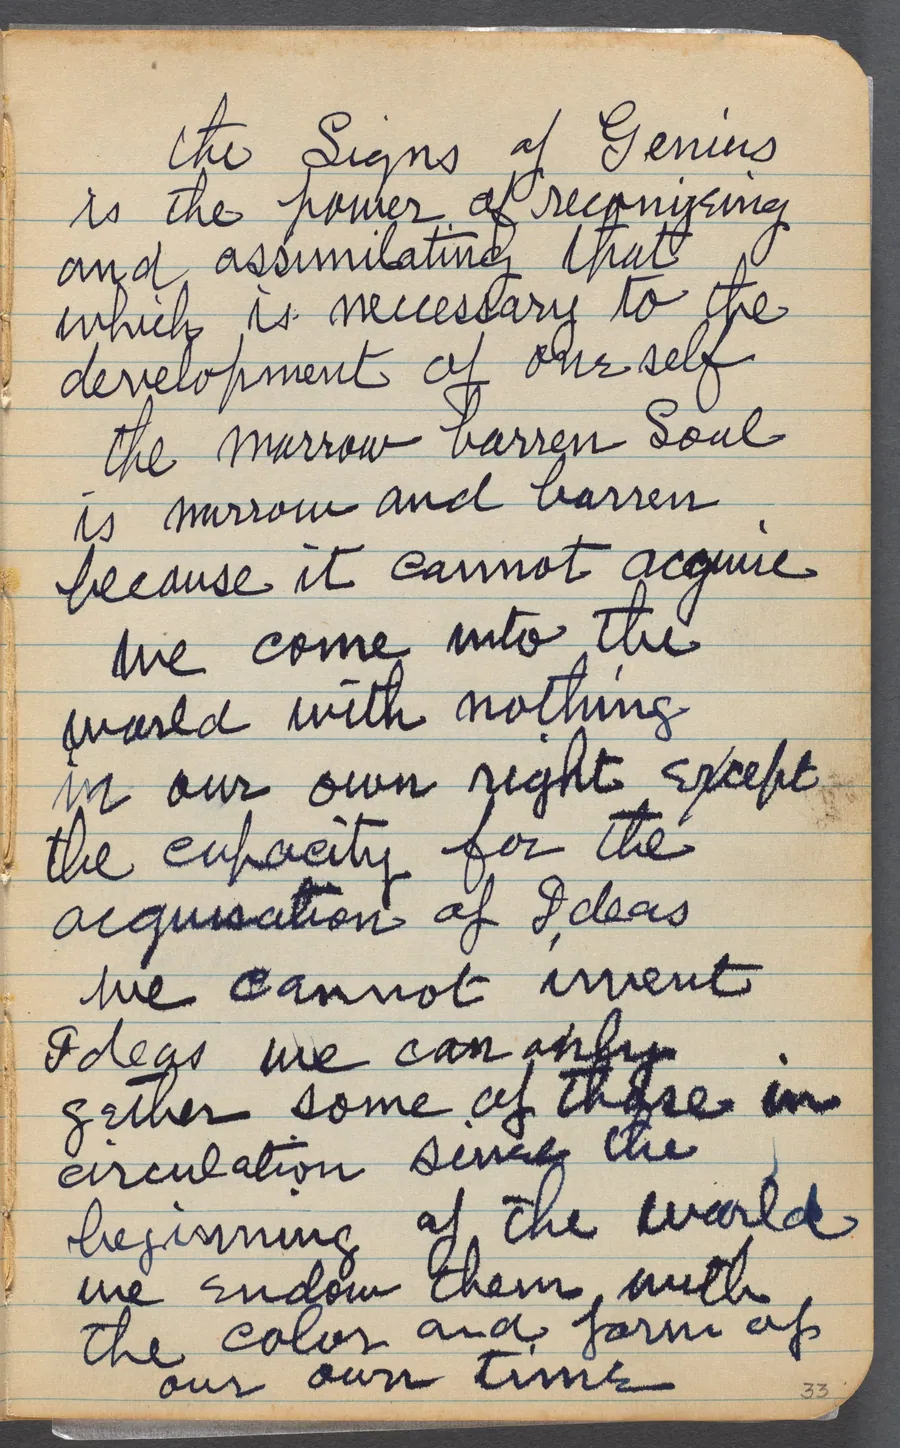 the Signs of Genius
is the power of recognizeing
and assimilating that
which is necessary to the
development of oneself
the narrow barren Soul
is narrow and barren
because it cannot acquire
We come into the
world with nothing
in our own right except
the capacity for the
acquisation of Ideas
We cannot invent
Ideas we can only
gether some of those in
circulation since the
beginning of the world
we endow them with
the color and form of
our own time
33